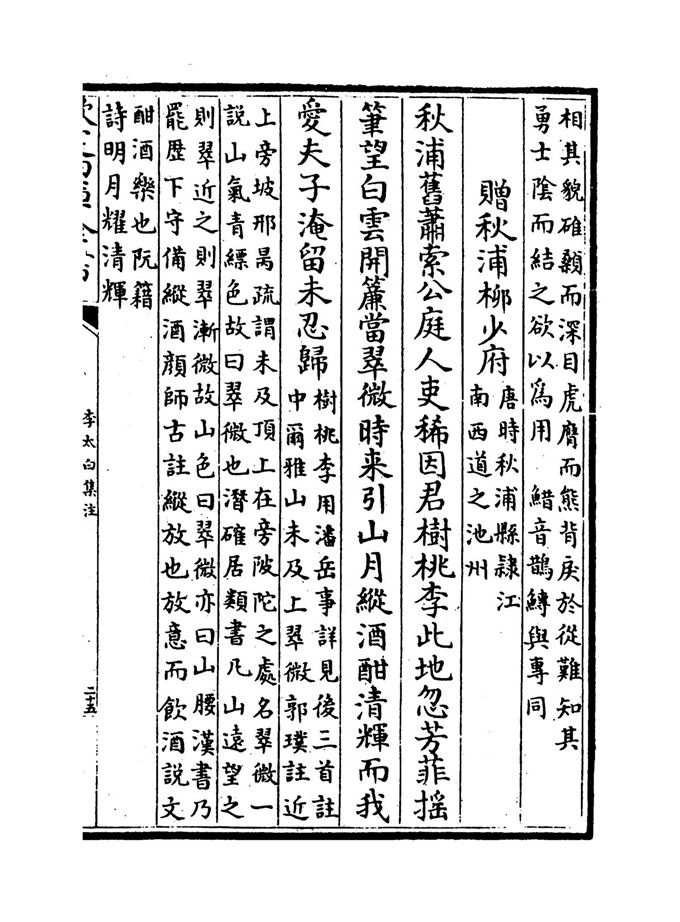 相其貌碓顙而深目虎膺而熊背戾於從難知其
勇士陰而結之欲以爲用　鱛音鵲鱄與專同
贈秋浦柳少府
唐時秋浦縣隷江
南西道之池州
秋浦舊蕭索公庭人吏稀因君樹桃李此地忽芳菲揺
筆望白雲開簾當翠微時来引山月縱酒酣清輝而我
愛夫子淹留未忍歸
樹桃李用潘岳事詳見後三首註
中爾雅山未及上翠微郭璞註近
上旁坡邢昺疏謂未及頂上在旁陂陀之處名翠微一
説山氣青縹色故曰翠微也潛確居類書凡山遠望之
則翠近之則翠漸微故山色曰翠微亦曰山腰漢書乃
罷歴下守備縱酒顔師古註縱放也放意而飲酒説文
酣酒樂也阮籍
詩明月耀清輝
李太白集注
二十五